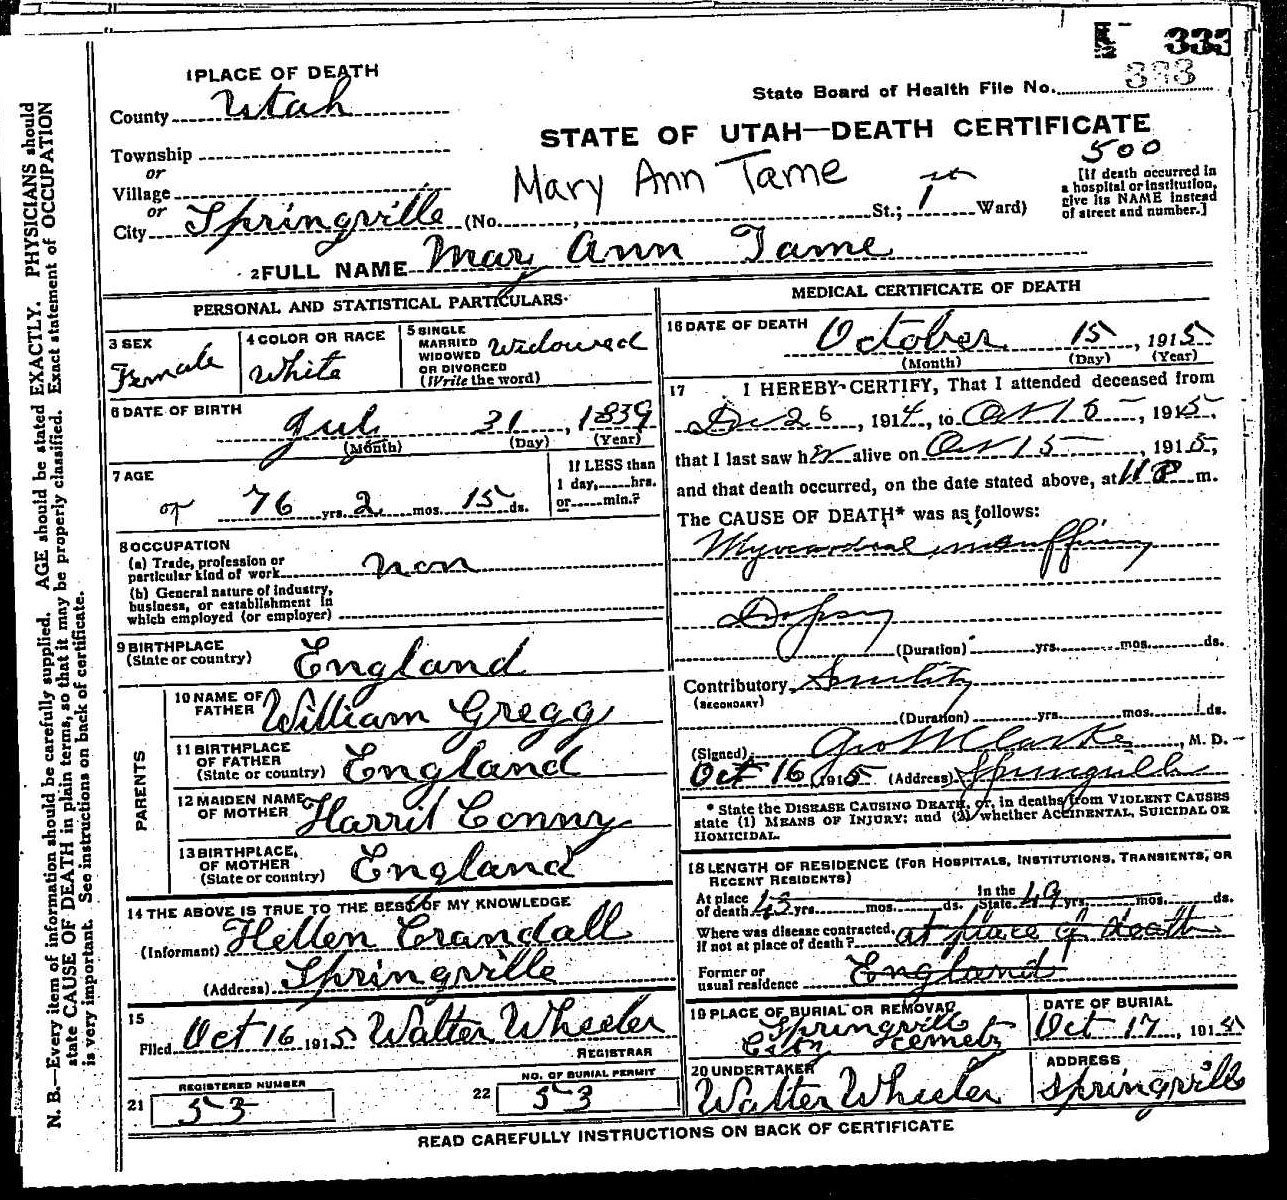 333
1 PLACE OF DEATH
County Utah
State Board of Health File No. 333
STATE OF UTAH—DEATH CERTIFICATE
500
Township
or
Village
or
City Springville (No. , St.; 1st Ward)
Mary Ann Tame
[If death occurred in
a hospital or institution,
give its NAME instead
of street and number.]
2 FULL NAME Mary Ann Tame
PERSONAL AND STATISTICAL PARTICULARS
3 SEX
Female
4 COLOR OR RACE
White
5 SINGLE
MARRIED
WIDOWED
OR DIVORCED
(Write the word)
Widowed
6 DATE OF BIRTH
Jul 31, 1839
(Month) (Day) (Year)
7 AGE
76 yrs. 2 mos. 15 ds.
If LESS than
1 day, hrs.
or min.?
8 OCCUPATION
(a) Trade, profession or
particular kind of work non
(b) General nature of industry,
business, or establishment in
which employed (or employer)
9 BIRTHPLACE
(State or country) England
PARENTS
10 NAME OF
FATHER William Gregg
11 BIRTHPLACE
OF FATHER
(State or country) England
12 MAIDEN NAME
OF MOTHER Harrit Conny
13 BIRTHPLACE
OF MOTHER
(State or country) England
14 THE ABOVE IS TRUE TO THE BEST OF MY KNOWLEDGE
(Informant) Hellen Crandall
(Address) Springville
15
Filed Oct 16 1915 Walter Wheeler
REGISTRAR
REGISTERED NUMBER
21 53
NO. OF BURIAL PERMIT
22 53
MEDICAL CERTIFICATE OF DEATH
16 DATE OF DEATH October 15, 1915
(Month) (Day) (Year)
17 I HEREBY CERTIFY, That I attended deceased from
Dec 26, 1914, to Oct 15, 1915,
that I last saw her alive on Oct 15, 1915,
and that death occurred, on the date stated above, at 11 P m.
The CAUSE OF DEATH* was as follows:
Myocardial
Dropsy
(Duration) yrs. mos. ds.
Contributory Senility
(SECONDARY)
(Duration) yrs. mos. ds.
(Signed) Geo W Clarke, M. D.
Oct 16 1915 (Address) Springville
* State the DISEASE CAUSING DEATH, or, in deaths from VIOLENT CAUSES
state (1) MEANS OF INJURY; and (2) whether ACCIDENTAL, SUICIDAL OR
HOMICIDAL.
18 LENGTH OF RESIDENCE (FOR HOSPITALS, INSTITUTIONS, TRANSIENTS, OR
RECENT RESIDENTS)
At place
of death 43 yrs. mos. ds.
In the
State 49 yrs. mos. ds.
Where was disease contracted,
if not at place of death? at place of death
Former or
usual residence England
19 PLACE OF BURIAL OR REMOVAL
Springville
City Cemety
DATE OF BURIAL
Oct 17, 1915
20 UNDERTAKER
Walter Wheeler
ADDRESS
Springville
READ CAREFULLY INSTRUCTIONS ON BACK OF CERTIFICATE
N. B.—Every item of information should be carefully supplied. AGE should be stated EXACTLY. PHYSICIANS should
state CAUSE OF DEATH in plain terms, so that it may be properly classified. Exact statement of OCCUPATION
is very important. See instructions on back of certificate.